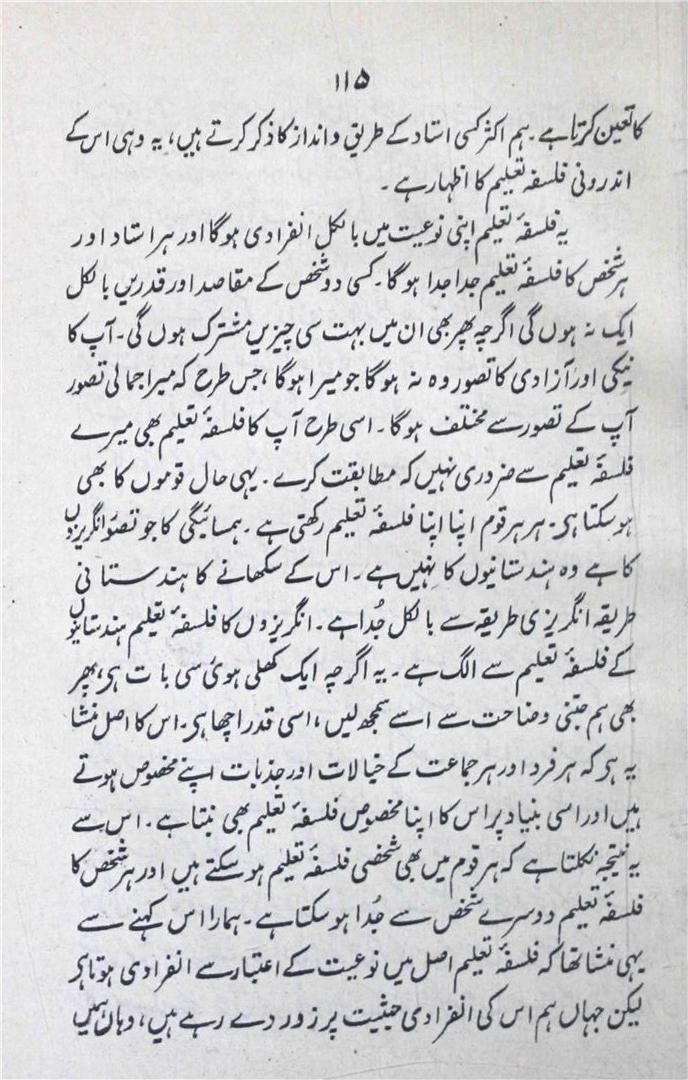 ۱۱۵
کا تعین کرتا ہے۔ ہم اکثر کسی استاد کے طریق و انداز کا ذکر کرتے ہیں، یہ وہی اس کے
اندرونی فلسفۂ تعلیم کا اظہار ہے۔
یہ فلسفۂ تعلیم اپنی نوعیت میں بالکل انفرادی ہوگا اور ہر استاد اور
ہر شخص کا فلسفۂ تعلیم جدا جدا ہوگا۔ کسی دو شخص کے مقاصد اور قدریں بالکل
ایک نہ ہوں گی اگرچہ پھر بھی ان میں بہت سی چیزیں مشترک ہوں گی۔ آپ کا
نیکی اور آزادی کا تصور وہ نہ ہوگا جو میرا ہوگا، جس طرح کہ میرا جمالی تصور
آپ کے تصور سے مختلف ہوگا۔ اسی طرح آپ کا فلسفۂ تعلیم بھی میرے
فلسفۂ تعلیم سے ضروری نہیں کہ مطابقت کرے۔ یہی حال قوموں کا بھی
ہوسکتا ہی۔ ہر ہر قوم اپنا اپنا فلسفۂ تعلیم رکھتی ہے۔ ہمسائیگی کا جو تصوّر انگریزوں
کا ہے وہ ہندستانیوں کا نہیں ہے۔ اس کے سکھانے کا ہندستانی
طریقہ انگریزی طریقہ سے بالکل جُدا ہے۔ انگریزوں کا فلسفۂ تعلیم ہندستانیوں
کے فلسفۂ تعلیم سے الگ ہے۔ یہ اگرچہ ایک کھلی ہوئی سی بات ہی، پھر
بھی ہم جتنی وضاحت سے اسے سمجھ لیں، اسی قدر اچھا ہی۔ اس کا اصل منشا
یہ ہی کہ ہر فرد اور ہر جماعت کے خیالات اور جذبات اپنے مخصوص ہوتے
ہیں اور اسی بنیاد پر اس کا اپنا مخصوص فلسفۂ تعلیم بھی بنتا ہے۔ اس سے
یہ نتیجہ نکلتا ہے کہ ہر قوم میں بھی شخصی فلسفۂ تعلیم ہوسکتے ہیں اور ہر شخص کا
فلسفۂ تعلیم دوسرے شخص سے جُدا ہوسکتا ہے۔ ہمارا اس کہنے سے
یہی منشا تھا کہ فلسفۂ تعلیم اصل میں نوعیت کے اعتبار سے انفرادی ہوتا ہی
لیکن جہاں ہم اس کی انفرادی حیثیت پر زور دے رہے ہیں، وہاں ہمیں